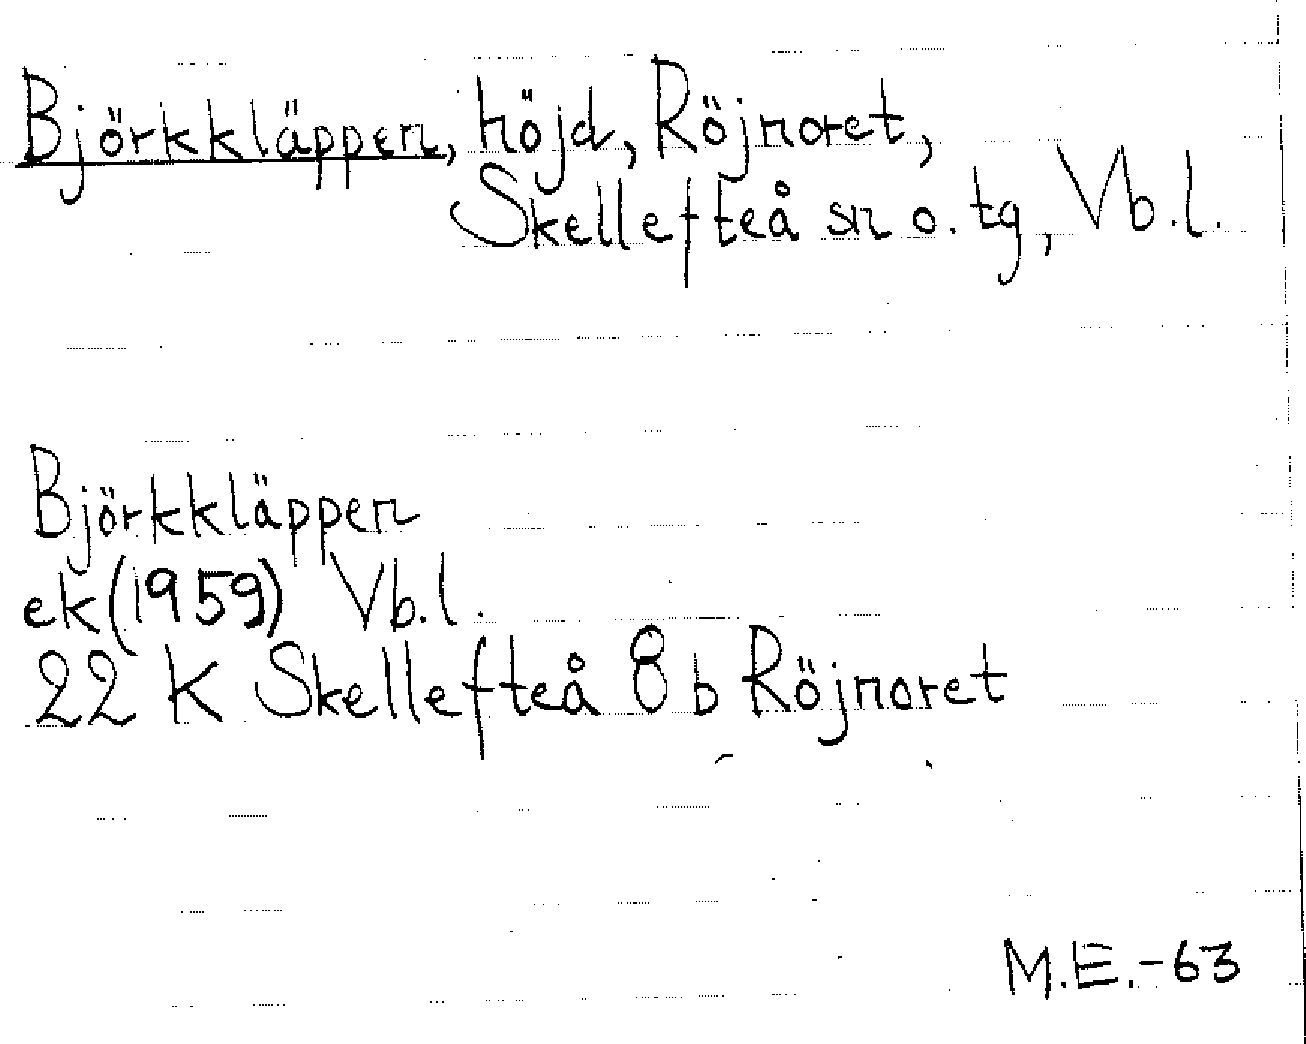 Björkkläppen, höjd, Röjnoret,
Skellefteå sn o. tg, Vb.l.
Björkkläppen
ek (1959) Vb.l.
22 K Skellefteå 8 b Röjnoret
M.E.-63